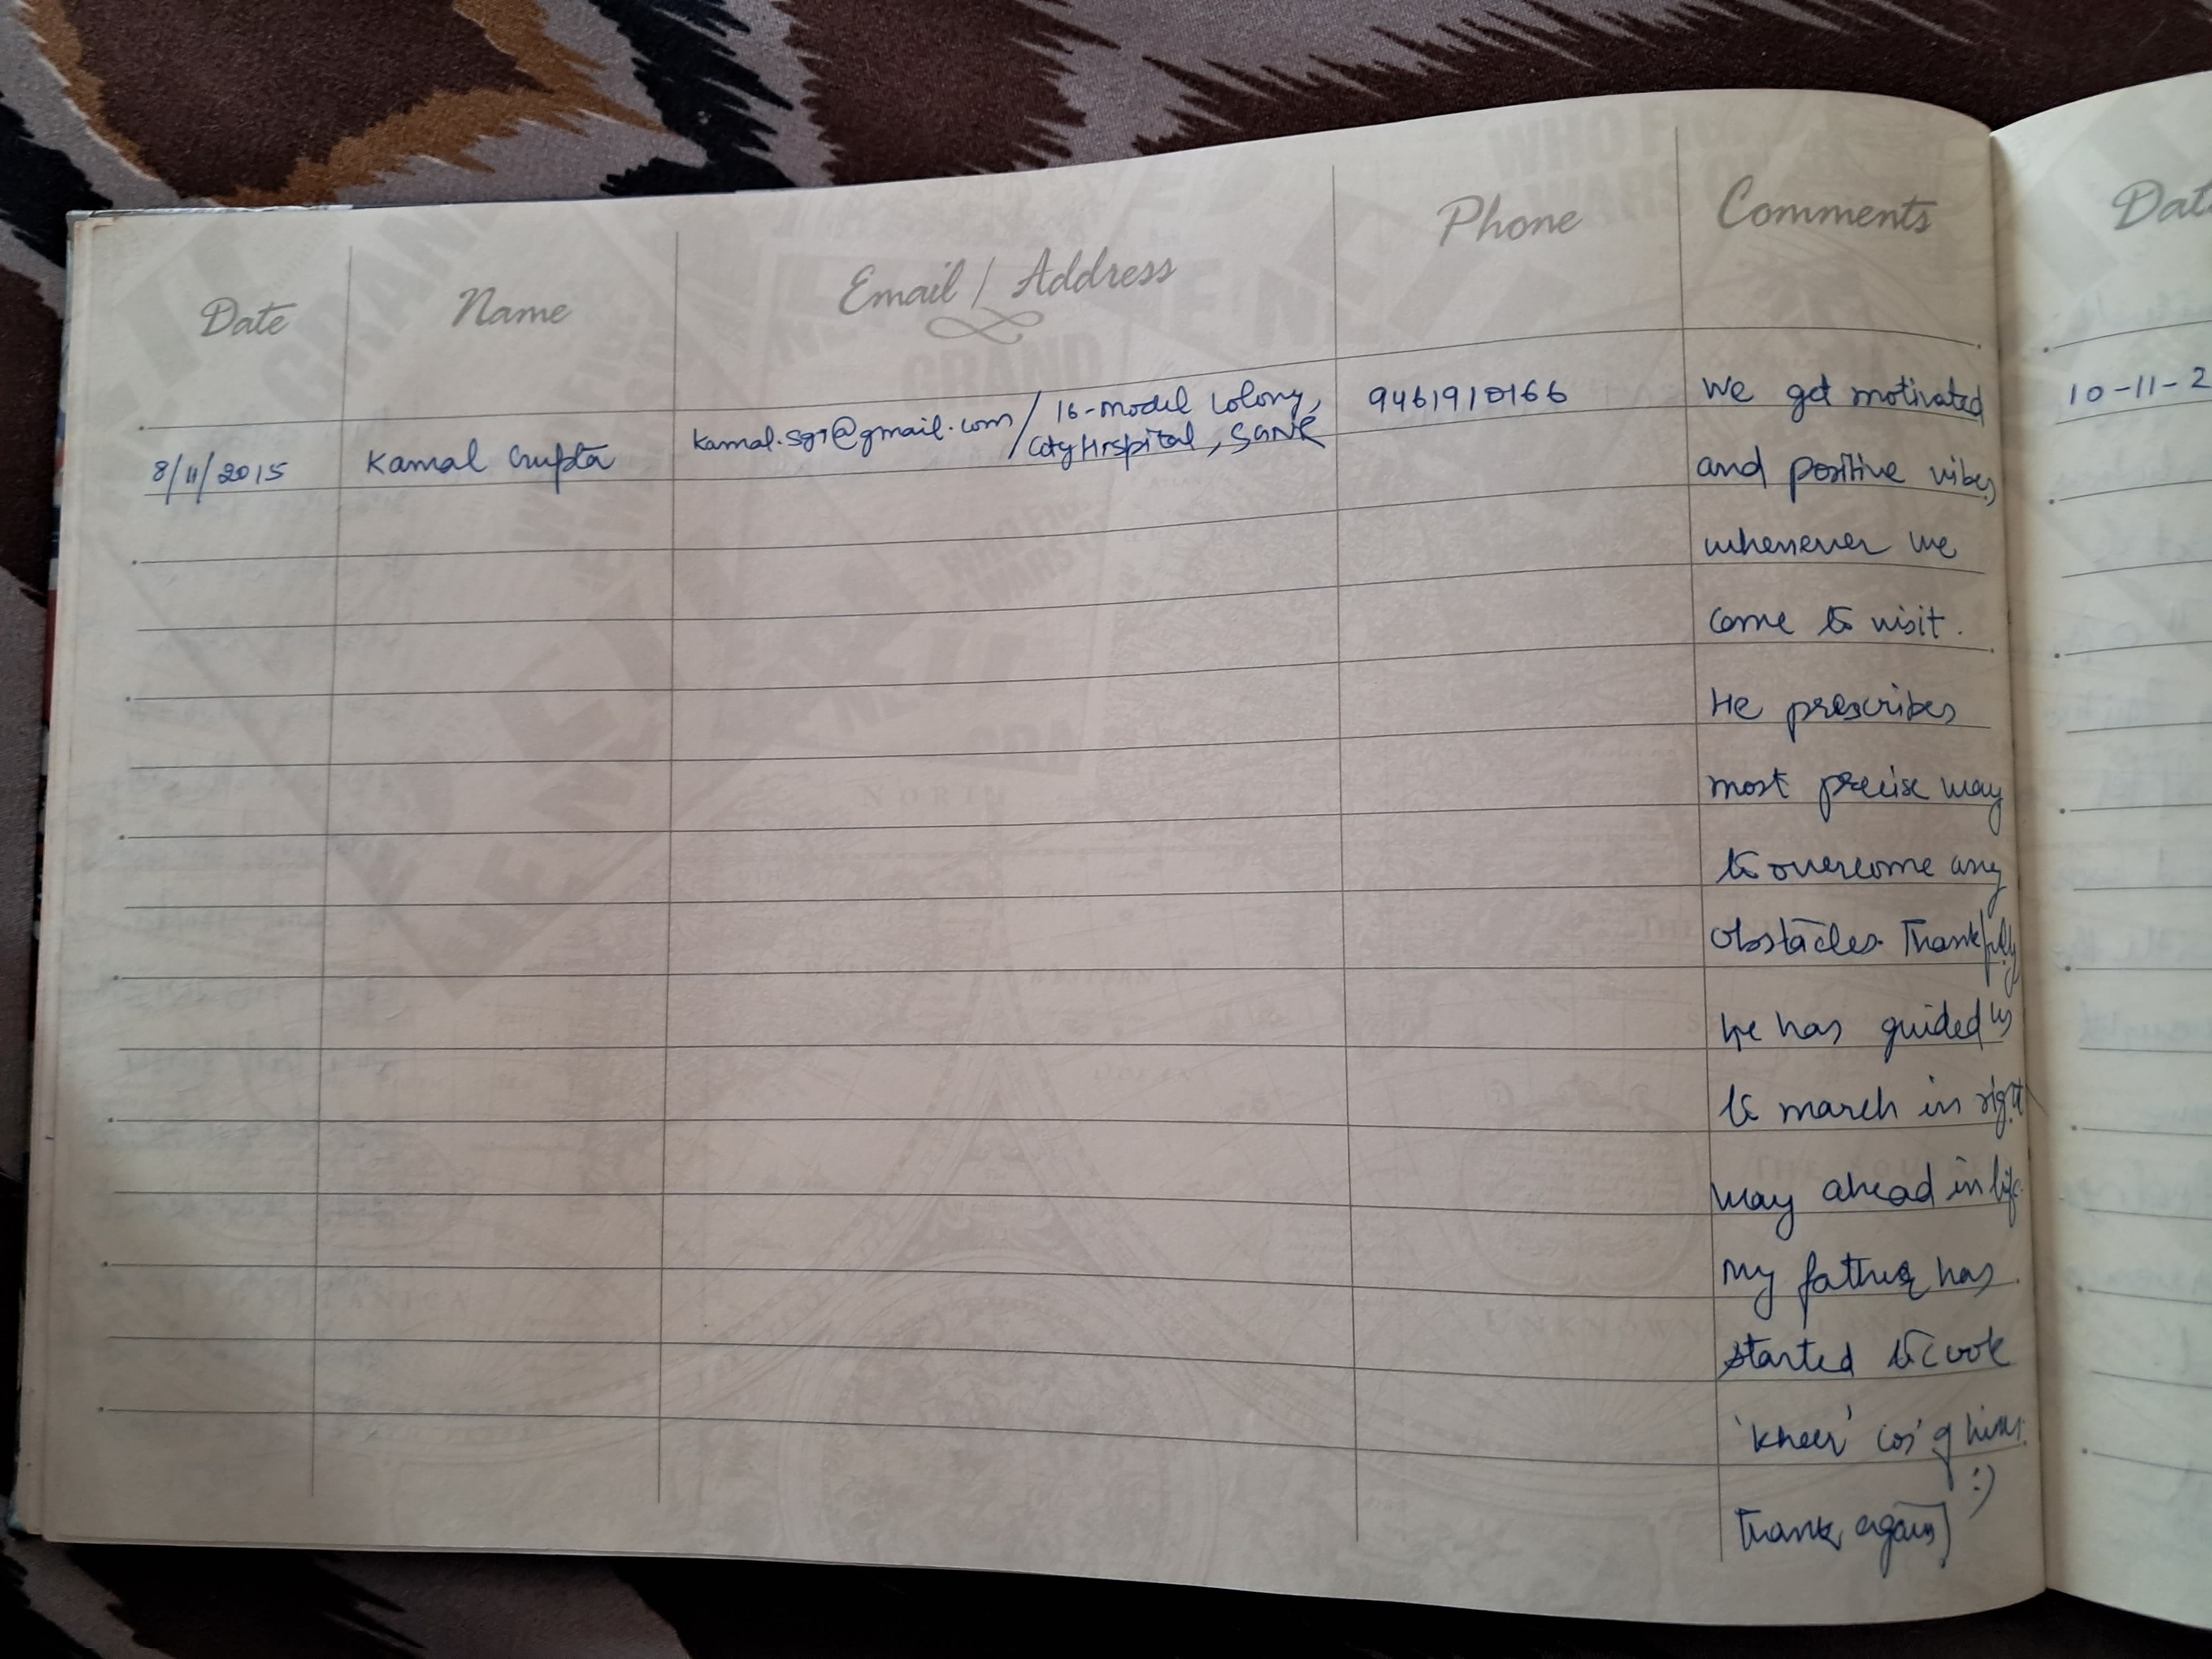 Date Name Email / Address Phone Comments
8/11/2015 Kamal Gupta kamal.sgr@gmail.com / 16-model colony, 9461910166 We get motivated
City Hospital, SGNR
and positive vibes
whenever we
come to visit.
He prescribes
most precise way
to overcome any
obstacles. Thankfully
he has guided us
to march in right
way ahead in life.
My father has
started to cook
'kheer' cos' of him.
:)
Thanks again
Dat
10-11-2
WHO FIG
WARS O
GRAND
NORTH
UNKNOWN